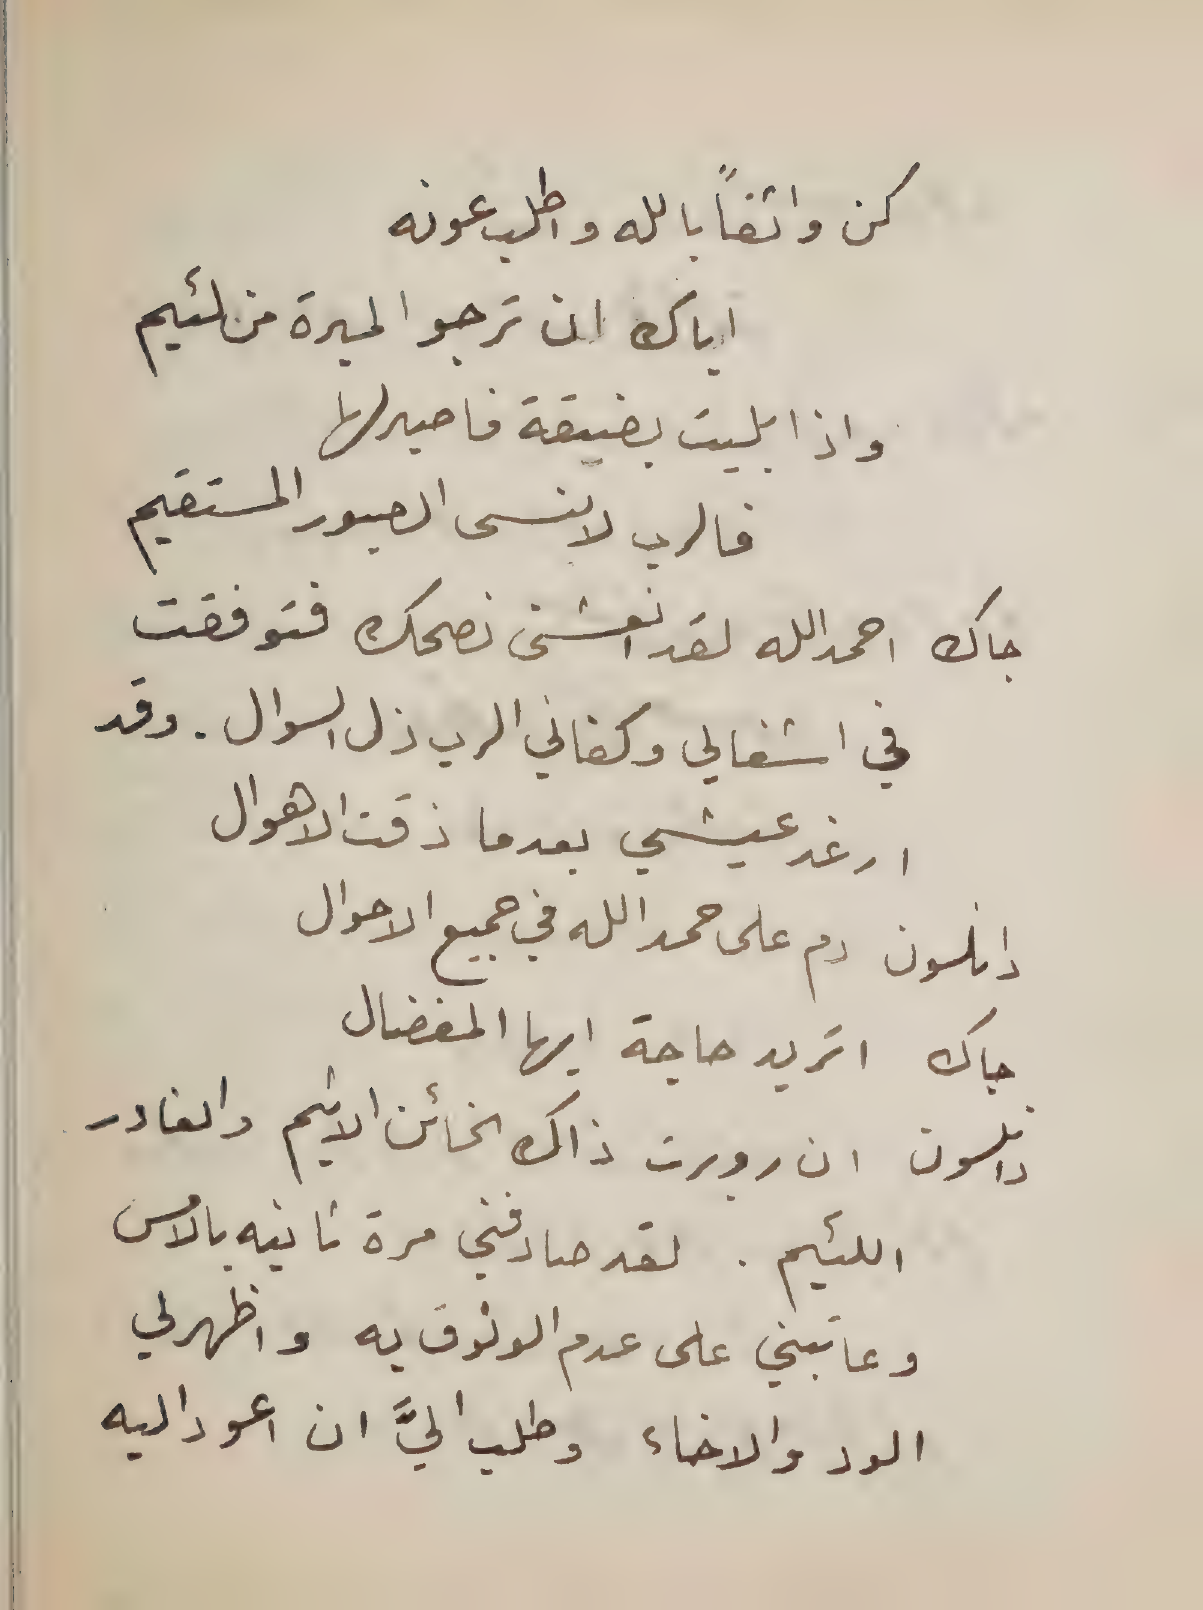 كن واثقاً بالله واطلب عونه
اياك ان ترجو المبرة من لئيم
واذا بليت بضيقة فاصبر لها
فالرب لا ينسى الصبور المستقيم
جاك احمد الله لقد انعشنى نصحك فتوفقت
في اشغالي وكفاني الرب ذل السوال . وقد
ارغد عيشي بعدما ذقت الاهوال
دانلسون دم على حمد الله في جميع الاحوال
جاك اتريد حاجة ايها المفضال
دانلسون ان روبرت ذاك الخائن الاثيم والغادر
اللئيم . لقد صادفني مرة ثانيه بالامس
وعاتبني على عدم الوثوق به واظهر لي
الود والاخاء وطلب اليَّ ان اعود اليه